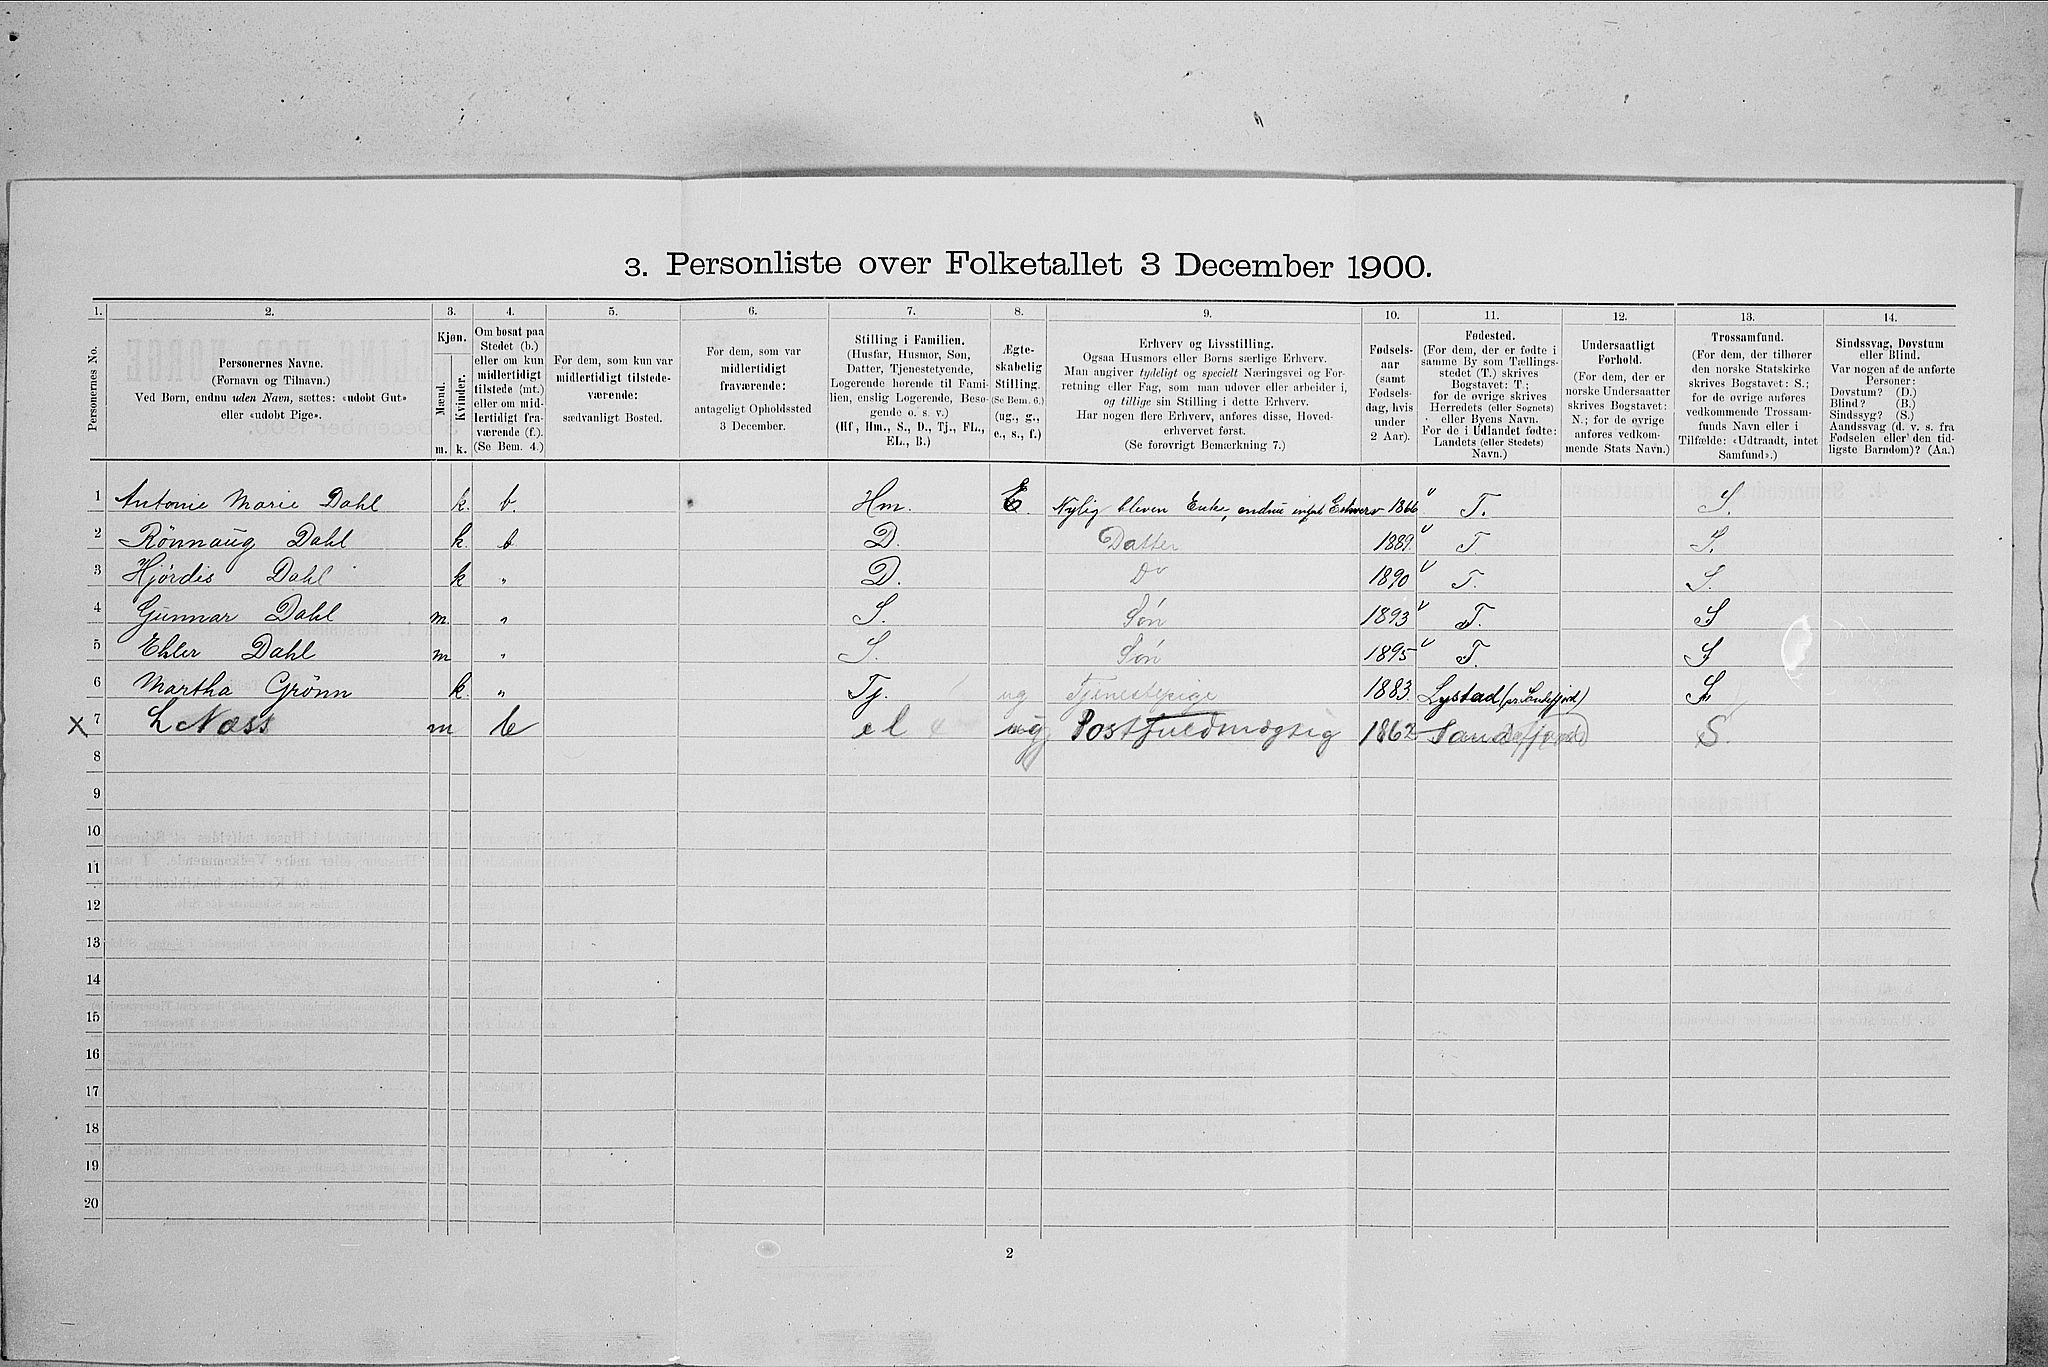 3. Personliste over Folketallet 3 December 1900.
1. 2. 3. 4. 5. 6. 7. 8. 9. 10. 11. 12. 13. 14.
Personernes No.
Personernes Navne.
(Fornavn og Tilnavn.)
Ved Børn, endnu uden Navn, sættes: «udobt Gut»
eller «udobt Pige».
Kjøn.
Mænd.
Kvinder.
m. k.
Om bosat paa
Stedet (b.)
eller om kun
midlertidigt
tilstede (mt.)
eller om mid-
lertidigt fra-
værende (f.).
(Se Bem. 4.)
For dem, som kun var
midlertidigt tilstede-
værende:
sædvanligt Bosted.
For dem, som var
midlertidigt
fraværende:
antageligt Opholdssted
3 December.
Stilling i Familien.
(Husfar, Husmor, Søn,
Datter, Tjenestetyende,
Logerende hørende til Fami-
lien, enslig Logerende, Besø-
gende o. s. v.)
(Hf, Hm., S., D., Tj., FL.,
EL., B.)
Ægte-
skabelig
Stilling.
(Se Bem. 6.)
(ug., g.,
e., s., f.)
Erhverv og Livsstilling.
Ogsaa Husmors eller Børns særlige Erhverv.
Man angiver tydeligt og specielt Næringsvei og For-
retning eller Fag, som man udover eller arbeider i,
og tillige sin Stilling i dette Erhverv.
Har nogen flere Erhverv, anføres disse, Hoved-
erhvervet først.
(Se forøvrigt Bemærkning 7.)
Fødsels-
aar
(samt
Fødsels-
dag, hvis
under
2 Aar).
Fødested.
(For dem, der er fødte i
samme By som Tællings-
stedet (T.) skrives
Bogstavet: T.;
for de øvrige skrives
Herredets (eller Sognets)
eller Byens Navn.
For de i Udlandet fødte:
Landets (eller Stedets)
Navn.)
Undersaatligt
Forhold.
(For dem, der er
norske Undersaatter
skrives Bogstavet:
N.; for de øvrige
anføres vedkom-
mende Stats Navn.)
Trossamfund.
(For dem, der tilhører
den norske Statskirke
skrives Bogstavet: S.;
for de øvrige anføres
vedkommende Trossam-
funds Navn eller i
Tilfælde: «Udtraadt, intet
Samfund».)
Sindssvag, Døvstum
eller Blind.
Var nogen af de anførte
Personer:
Døvstum? (D.)
Blind? (B.)
Sindssyg? (S.)
Aandssvag (d. v. s. fra
Fødselen eller den tid-
ligste Barndom)? (Aa.)
1 Antonie Marie Dahl k. b. Hm. E. Nylig bleven Enke, endnu intet Erhverv 1866 T. S.
2 Rönnaug Dahl k. b D. Datter 1889. T S.
3 Hjördis Dahl k " D. Do 1890 T. S.
4 Gunnar Dahl m. " S. Sön 1893 T. S
5 Ehler Dahl m " S. Sön 1895 T. S
6 Martha Grönn k. " Tj. ug Tjenestepige 1883. Lystad (pr. Sandefjord) S.
x 7 L Næss m b el ug Postfuldmægtig 1862 Sandefjord S.
8
9
10
11
12
13
14
15
16
17
18
19
20
2